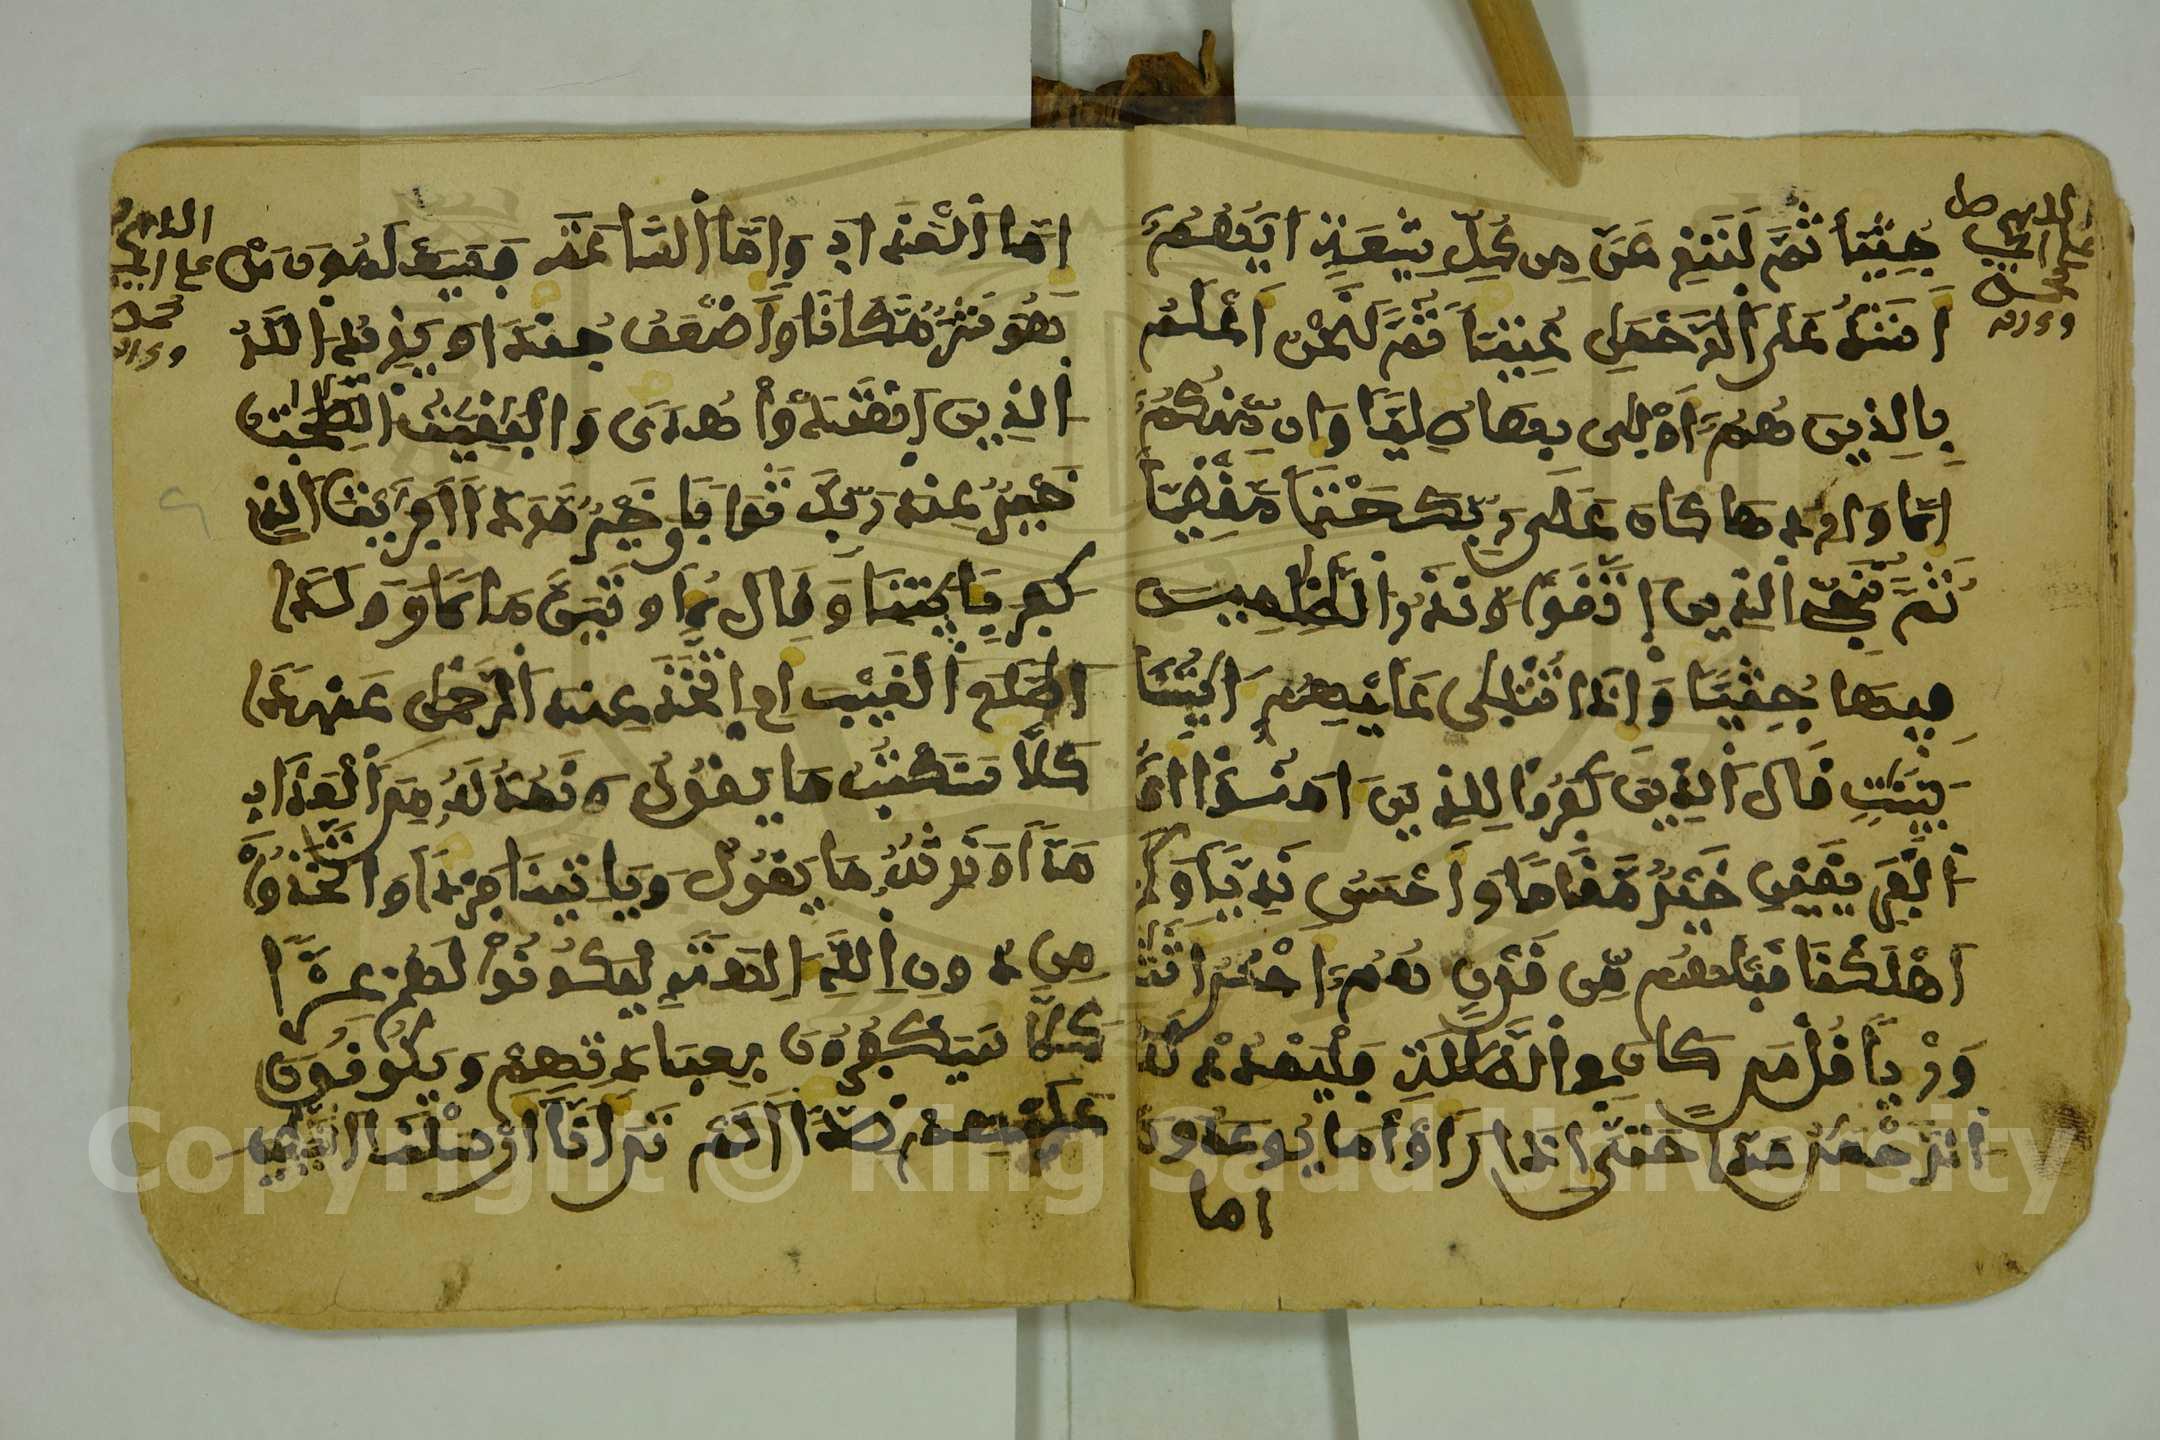 اللهم صل
على النبي
محمد
جثيا ثم لننزعن من كل شيعة ايهم
اشد على الرحمن عتيا ثم لنحن اعلم
بالذين هم اولى بها صليا وان منكم
الا واردها كان على ربك حتما مقضيا
ثم ننجي الذين اتقوا ونذر الظلمين
فيها جثيا واذا تتلى عليهم ايتنا
بينت قال الذين كفروا للذين امنوا اي
الفريقين خير مقاما واحسن نديا وكم
اهلكنا قبلهم من قرن هم احسن اثثا
وريا قل من كان في الضللة فليمدد له
الرحمن مدا حتى اذا راوا ما يوعدون
اما
اللهم صل
على النبي
محمد
اما العذاب واما الساعة فسيعلمون من
هو شر مكانا واضعف جندا ويزيد الله
الذين اهتدوا هدى والبقيت الصلحت
خير عند ربك ثوابا وخير مردا افريت الذي
كفر بايتنا وقال لاوتين مالا وولدا
اطلع الغيب ام اتخذ عند الرحمن عهدا
كلا سنكتب ما يقول ونمد له من العذاب
مدا ونرثه ما يقول وياتينا فردا واتخذوا
من دون الله الهة ليكونوا لهم عزا
كلا سيكفرون بعبادتهم ويكونون
عليهم ضدا الم تر انا ارسلنا الشيطين
Copyright © King Saud University